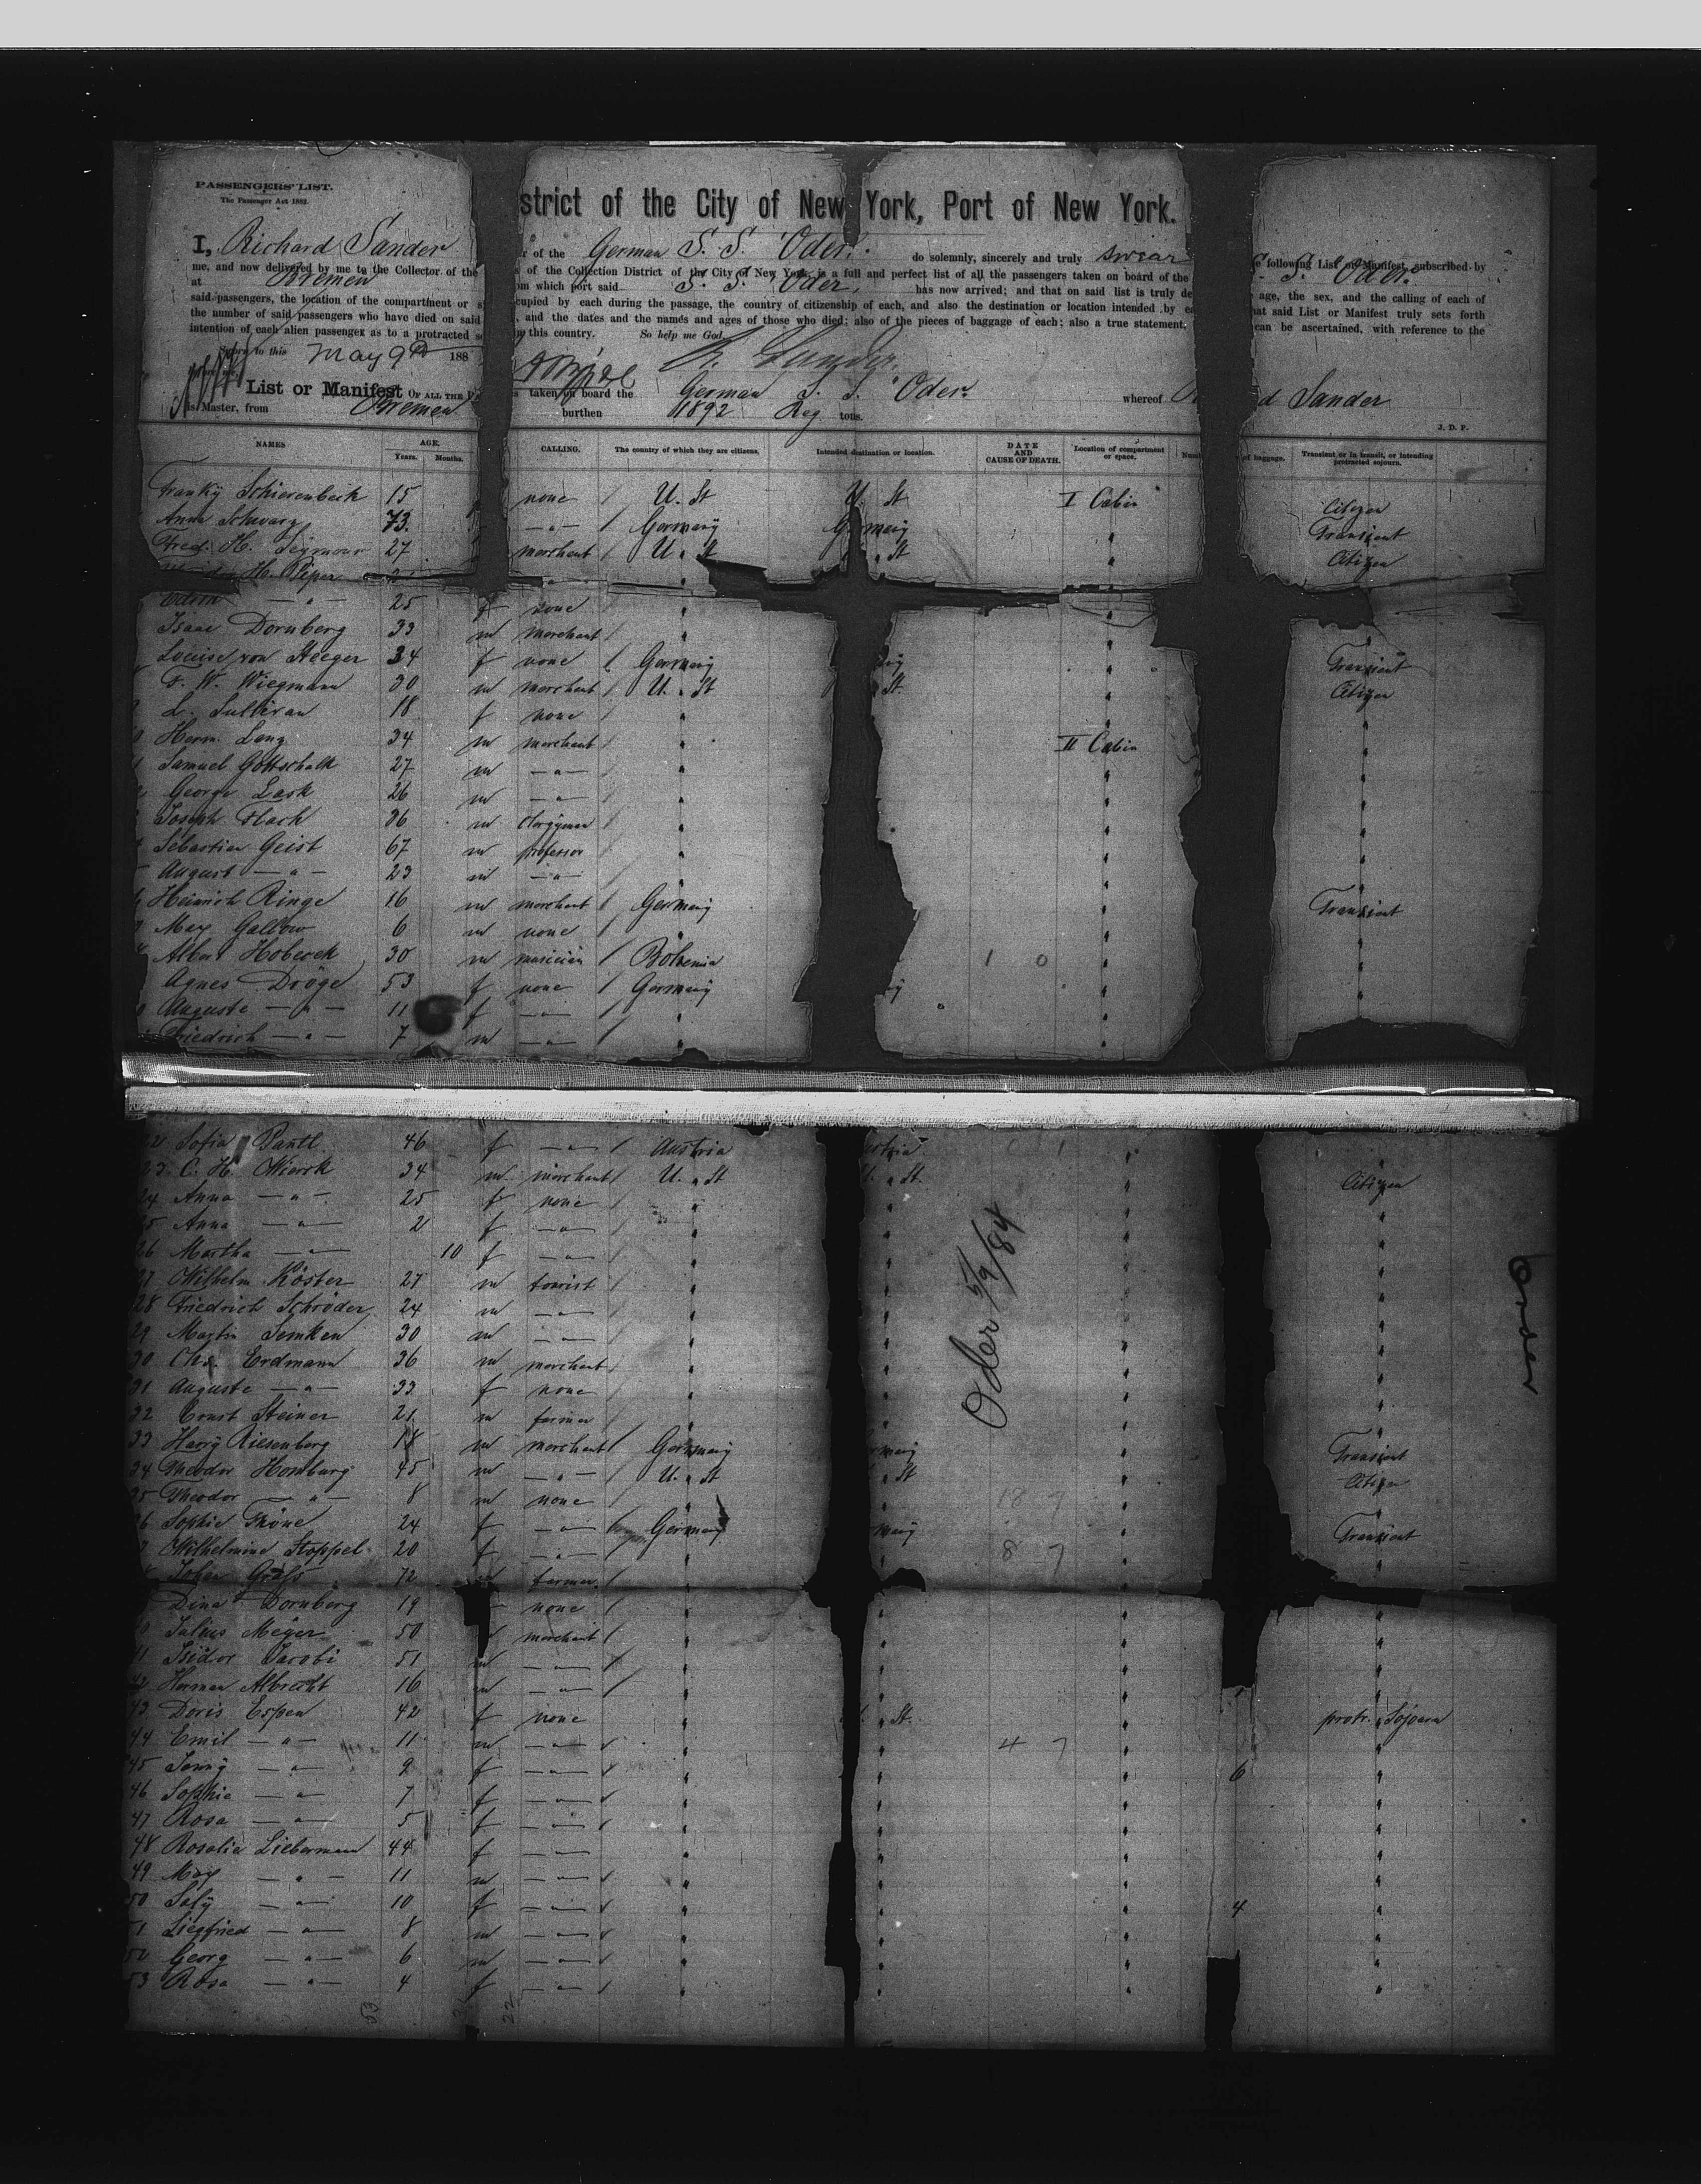 PASSENGERS' LIST.
The Passenger Act 1882.
strict of the City of New York, Port of New York.
I, Richard Sander r of the German S. S. "Oder" do solemnly, sincerely and truly swear e following List or Manifest, subscribed by
me, and now delivered by me to the Collector of the of the Collection District of the City of New York, is a full and perfect list of all the passengers taken on board of the S. Oder.
at Bremen om which port said S. S. "Oder" has now arrived; and that on said list is truly de age, the sex, and the calling of each of
said passengers, the location of the compartment or s cupied by each during the passage, the country of citizenship of each, and also the destination or location intended by e at said List or Manifest truly sets forth
the number of said passengers who have died on said , and the dates and the names and ages of those who died; also of the pieces of baggage of each; also a true statement, can be ascertained, with reference to the
intention of each alien passenger as to a protracted s this country. So help me God.
Sworn to this May 9th 188 R. Sander.
List or Manifest OF ALL THE taken on board the German S. S. "Oder"
as Master, from Bremen burthen 1892 Reg tons. whereof R d Sander
J. D. P.
NAMES AGE. Years. Months. CALLING. The country of which they are citizens. Intended destination or location. DATE AND CAUSE OF DEATH. Location of compartment or space. of baggage. Transient or in transit, or intending protracted sojourn.
Franky Schierenbeck 15 none / U. St U. St I Cabin Citizen
Anna Schwarz 73. —"— / Germany Germany " Transient
Fred. H. Seymour 27 merchant / U. " St " St " Citizen
H. Piper
—"— 25 f none / "
Isaac Dornberg 33 m merchant / "
Louise von Heeger 34 f none / Germany " Transient
F. W. Wiegmann 30 m merchant / U. " St " St " Citizen
L. Sullivan 18 f none / " " "
Herm. Lang 34 m merchant / " II Cabin "
Samuel Gottschalk 27 m —"— / " " "
George Lask 26 m —"— / " " "
Joseph Flach 36 m Clergyman / " " "
Sebastian Geist 67 m professor / " " "
August —"— 23 m —"— / " " "
Heinrich Ringe 16 m merchant / Germany " Transient
Max Gallow 6 m none / " " "
Albert Hobereck 30 m musician / Bohemia 1 0 " "
Agnes Dröge 53 f none / Germany " "
Auguste —"— 11 f —"— / " " "
Friedrich —"— 7 m —"— / " "
22 Sofia Pantl 46 f —"— / Austria stria "
23. C. H. Wierk 34 m merchant / U. " St " St. " Citizen
24 Anna —"— 25 f none / " " " "
25 Anna —"— 2 f —"— / " " " "
26 Martha —"— 10 f —"— / " " " "
27 Wilhelm Köster 27 m tourist / " " " "
28 Friedrich Schröder 24 m —"— / " " " "
29 Martin Semken 30 m —"— / " " " "
Oder 5/9/84
30 Chs. Erdmann 36 m merchant / " " " "
31 Auguste —"— 33 f none / " " " "
32 Ernst Steiner 21 m farmer / " " " "
33 Harry Riesenberg 18 m merchant / Germany many " Transient
34 Theodor Homburg 45 m —"— / U. " St " St " Citizen
35 Theodor —"— 8 m none / " " 18 7 " "
36 Sophie Thöne 24 f —"— / Germany many " Transient
Wilhelmine Stoppel 20 f —"— / " " 8 7 " "
Johan Gräfs 72 farmer /
Dina Dornberg 19 none / " " " "
Julius Meyer 50 merchant / " " " "
41 Isidor Jacobi 51 m —"— / " " " "
42 Herman Albrecht 16 m —"— / " " " "
43 Doris Espen 42 f none " " St. " protr. Sojourn
44 Emil —"— 11 m —"— " " 4 7 " "
45 Jenny —"— 9 f —"— " " " 6 "
46 Sophie —"— 7 f —"— " " " "
47 Rosa —"— 5 f —"— " " " "
48 Rosalie Liebermann 44 f —"— " " " "
49 Max —"— 11 m —"— " " " "
50 Saly —"— 10 f —"— " " " 4 "
51 Siegfried —"— 8 m —"— " " " "
52 Georg —"— 6 m —"— " " " "
53 Rosa —"— 4 f —"— " " " "
53 22